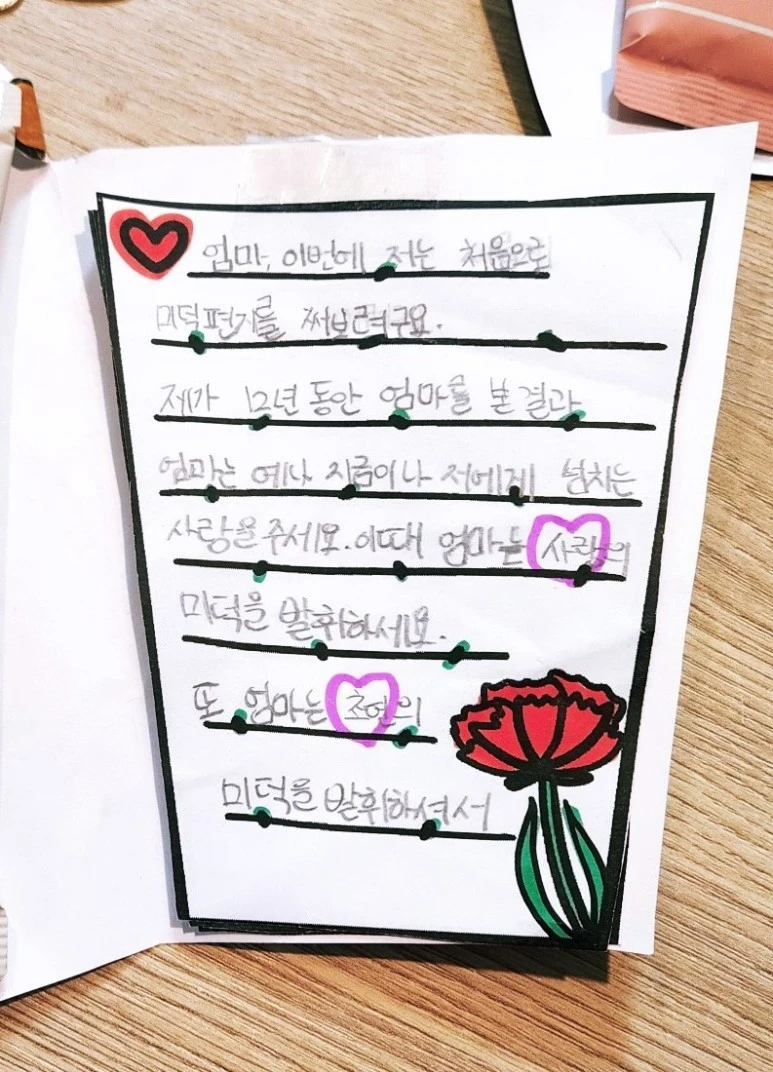 엄마, 이번에 저는 처음으로
미덕편지를 써보려구요.
제가 12년 동안 엄마를 본 결과
엄마는 예나 지금이나 저에게 넘치는
사랑을 주세요. 이때 엄마는 사랑의
미덕을 발휘하세요.
또 엄마는 초연의
미덕을 발휘하셔서